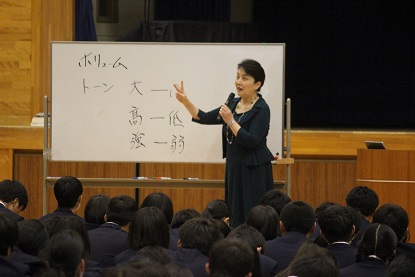 ボリューム
トーン 大 ー 小
高 ー 低
強 ー 弱